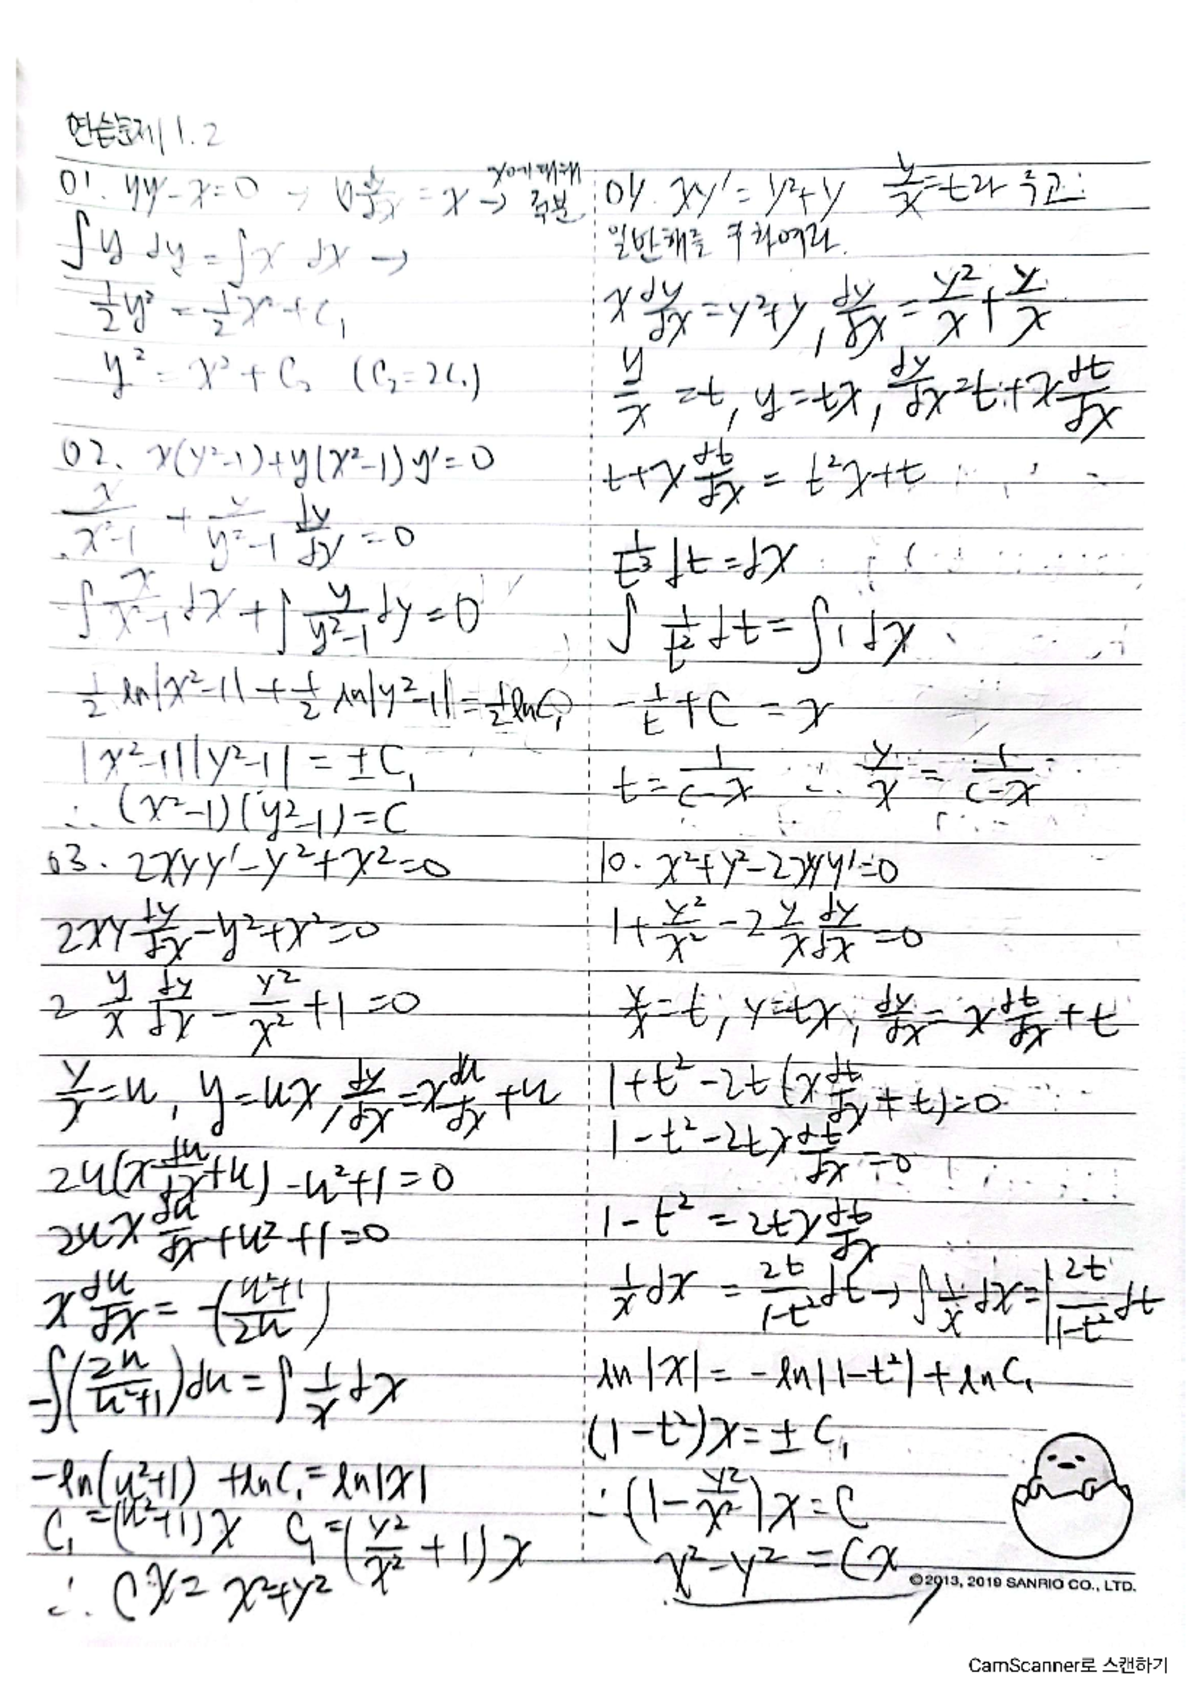 연습문제 1.2
01. yy'-x=0 → y dy/dx = x → x에 대해 적분
∫y dy = ∫x dx →
1/2 y² = 1/2 x² + C₁
y² = x² + C₂ (C₂=2C₁)
02. x(y²-1)+y(x²-1)y'=0
x/(x²-1) + y/(y²-1) dy/dx = 0
∫ x/(x²-1) dx + ∫ y/(y²-1) dy = 0
1/2 ln|x²-1| + 1/2 ln|y²-1| = 1/2 lnC₁
|x²-1||y²-1| = ±C₁
∴ (x²-1)(y²-1)=C
03. 2xyy'-y²+x²=0
2xy dy/dx - y²+x²=0
2 y/x dy/dx - y²/x² + 1 = 0
y/x = u, y=ux, dy/dx = x du/dx + u
2u(x du/dx + u) - u²+1 = 0
2ux du/dx + u²+1=0
x du/dx = -((u²+1)/2u)
-∫(2u/(u²+1))du = ∫ 1/x dx
-ln(u²+1) + lnC₁ = ln|x|
C₁ = (u²+1)x C₁ = (y²/x² + 1)x
∴ Cx = x²+y²
04. xy' = y²+y y/x = t라 두고
일반해를 구하여라.
x dy/dx = y²+y, dy/dx = y²/x + y/x
y/x = t, y=tx, dy/dx = t + x dt/dx
t+x dt/dx = t²x+t
1/t² dt = dx
∫ 1/t² dt = ∫ 1 dx
-1/t + C = x
t = 1/(C-x) ∴ y/x = 1/(C-x)
10. x²+y²-2xyy'=0
1 + y²/x² - 2 y/x dy/dx = 0
y/x = t, y=tx, dy/dx = x dt/dx + t
1+t²-2t(x dt/dx + t)=0
1-t²-2tx dt/dx = 0
1-t² = 2tx dt/dx
1/x dx = 2t/(1-t²) dt → ∫ 1/x dx = ∫ 2t/(1-t²) dt
ln|x| = -ln|1-t²| + lnC₁
(1-t²)x = ±C₁
∴ (1 - y²/x²)x = C
x²-y² = Cx
©2013, 2019 SANRIO CO., LTD.
CamScanner로 스캔하기